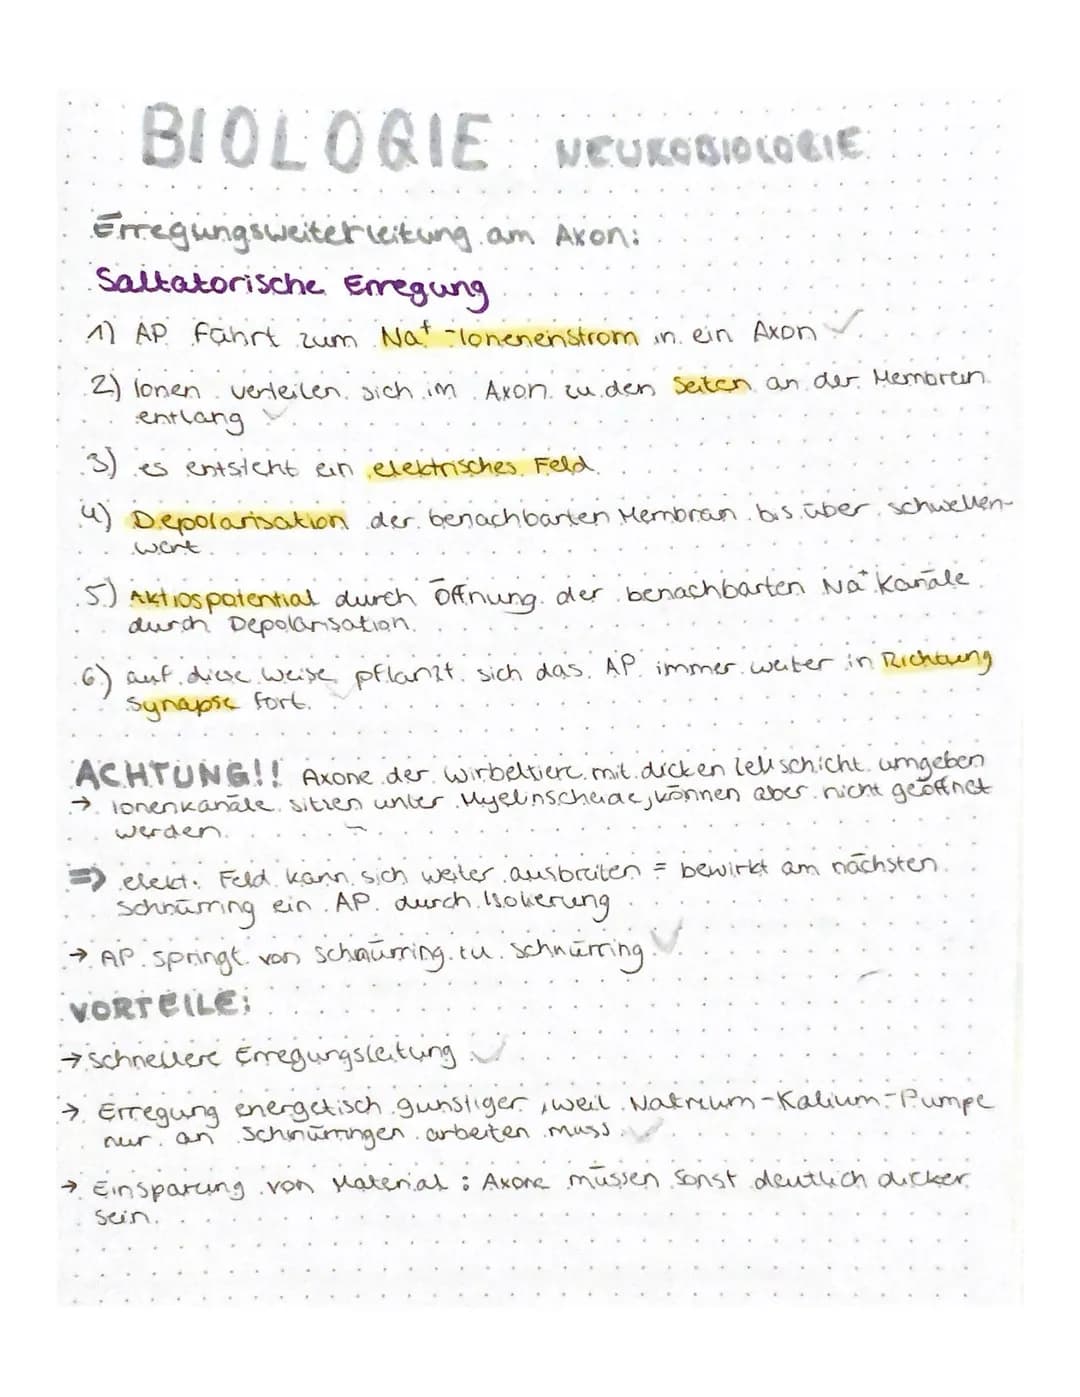 BIOLOGIE NEUROBIOLOGIE
Erregungsweiterleitung am Axon:
Saltatorische Erregung
1) AP führt zum Na⁺-Ionenenstrom in ein Axon ✓
2) Ionen verteilen sich im Axon zu den Seiten an der Membran
entlang ✓
3) es entsteht ein elektrisches Feld.
4) Depolarisation der benachbarten Membran bis über schwellen-
wert
5) Aktiospotential durch Öffnung der benachbarten Na⁺Kanäle
durch Depolarisation.
6) auf diese Weise pflanzt sich das AP immer weiter in Richtung
Synapse fort.
ACHTUNG!! Axone der Wirbeltiere mit dicken Zellschicht umgeben
→ Ionenkanäle sitzen unter Myelinscheide, können aber nicht geöffnet
werden.
⇒ elekt. Feld kann sich weiter ausbreiten = bewirkt am nächsten
Schnürring ein AP durch Isolierung
→ AP springt von Schnürring zu Schnürring ✓
VORTEILE:
→ Schnellere Erregungsleitung ✓
→ Erregung energetisch günstiger, weil Natrium-Kalium-Pumpe
nur an Schnürringen arbeiten muss ✓
→ Einsparung von Material: Axone müssen sonst deutlich dicker
sein.